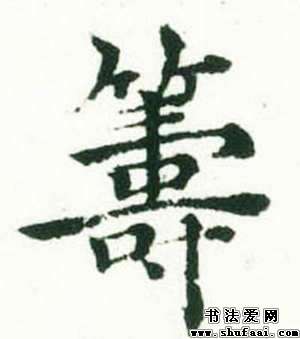 籌
书法爱网
www.shufaai.com